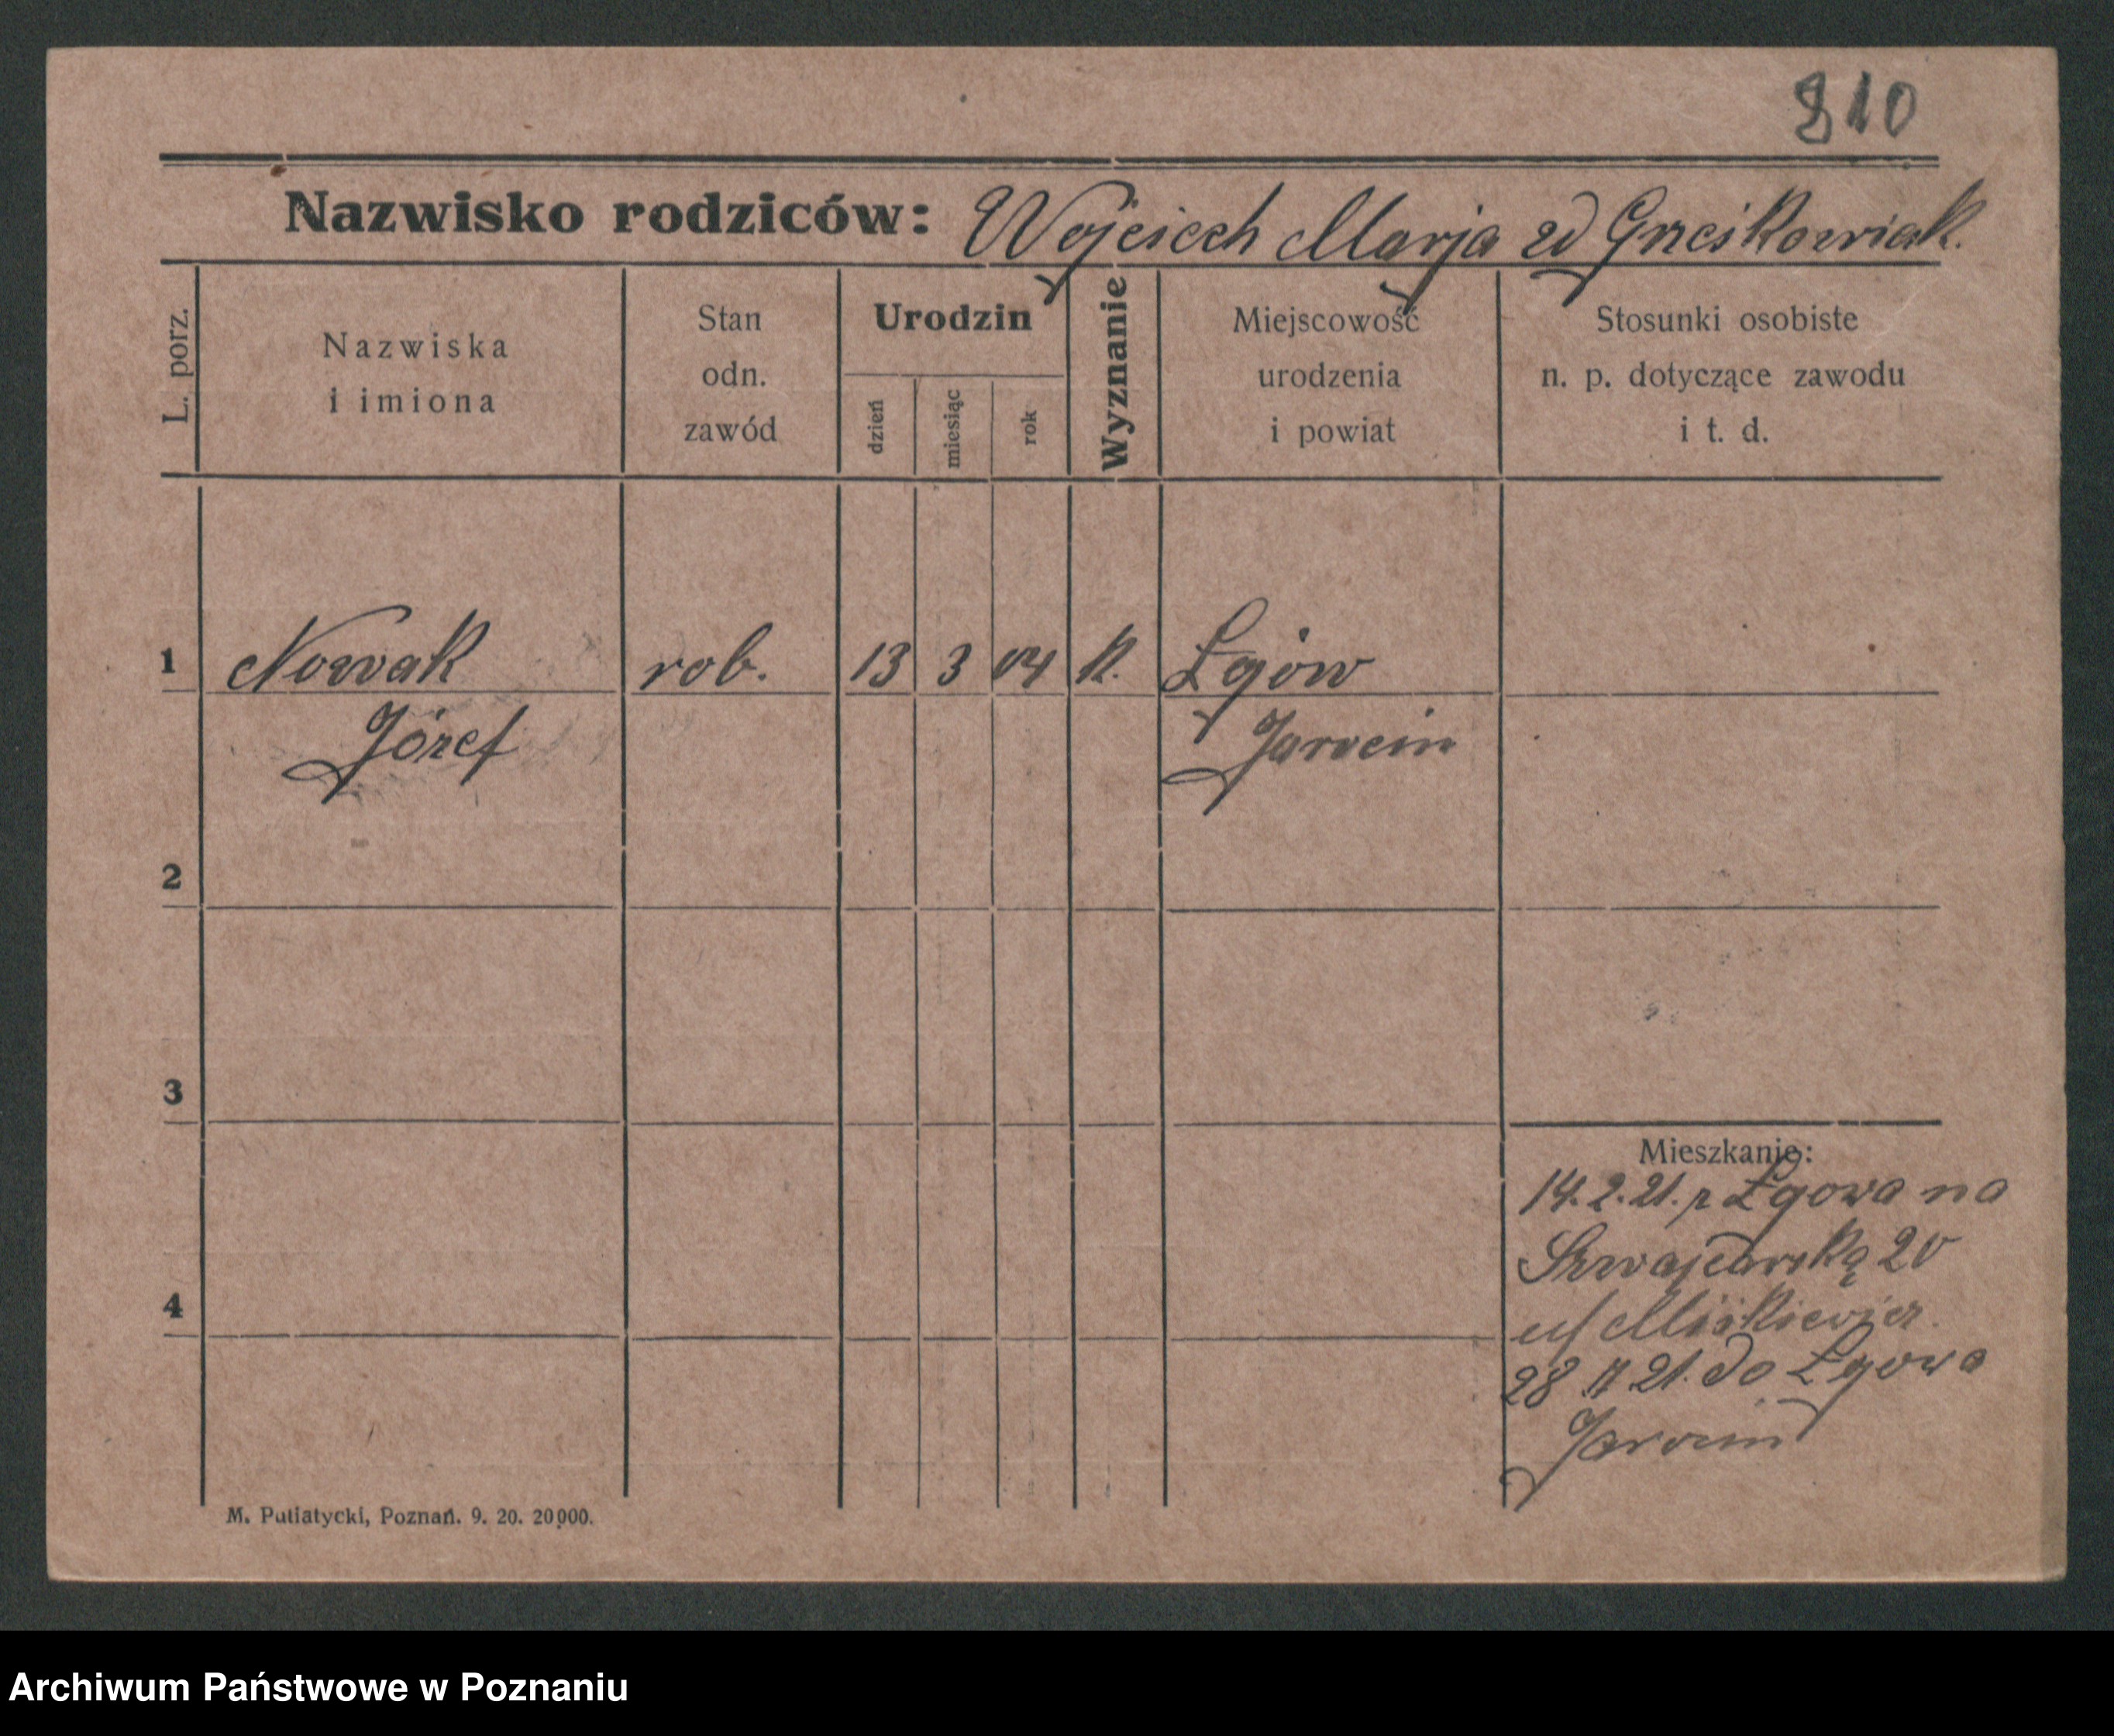 810
Nazwisko rodziców: Wojciech Marja zd Grześkowiak.
L. porz.
Nazwiska
i imiona
Stan
odn.
zawód
Urodzin
dzień
miesiąc
rok
Wyznanie
Miejscowość
urodzenia
i powiat
Stosunki osobiste
n. p. dotyczące zawodu
i t. d.
1 Nowak rob. 13 3 04 k. Łgów
Józef Jarocin
2
3
Mieszkanie:
14.2.21. z Łgowa na
Szwajcarską 20
u/
4
28 21. do Łgowa
Jarocin
M. Putiatycki, Poznań. 9. 20. 20000.
Archiwum Państwowe w Poznaniu